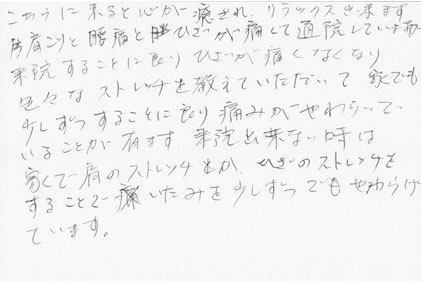 こちらに来ると心が癒され、リラックス出来ます
肩こりと腰痛とひざが痛くて通院していますが
来院することに良りひざが痛くなくなり
色々なストレッチを教えていただいて 家でも
少しずつすることに良り痛みがやわらいで
いることが有ます。来院出来ない時は
家で肩のストレッチとか、ひざのストレッチを
することで痛いたみを少しずつでもやわらげ
ています。